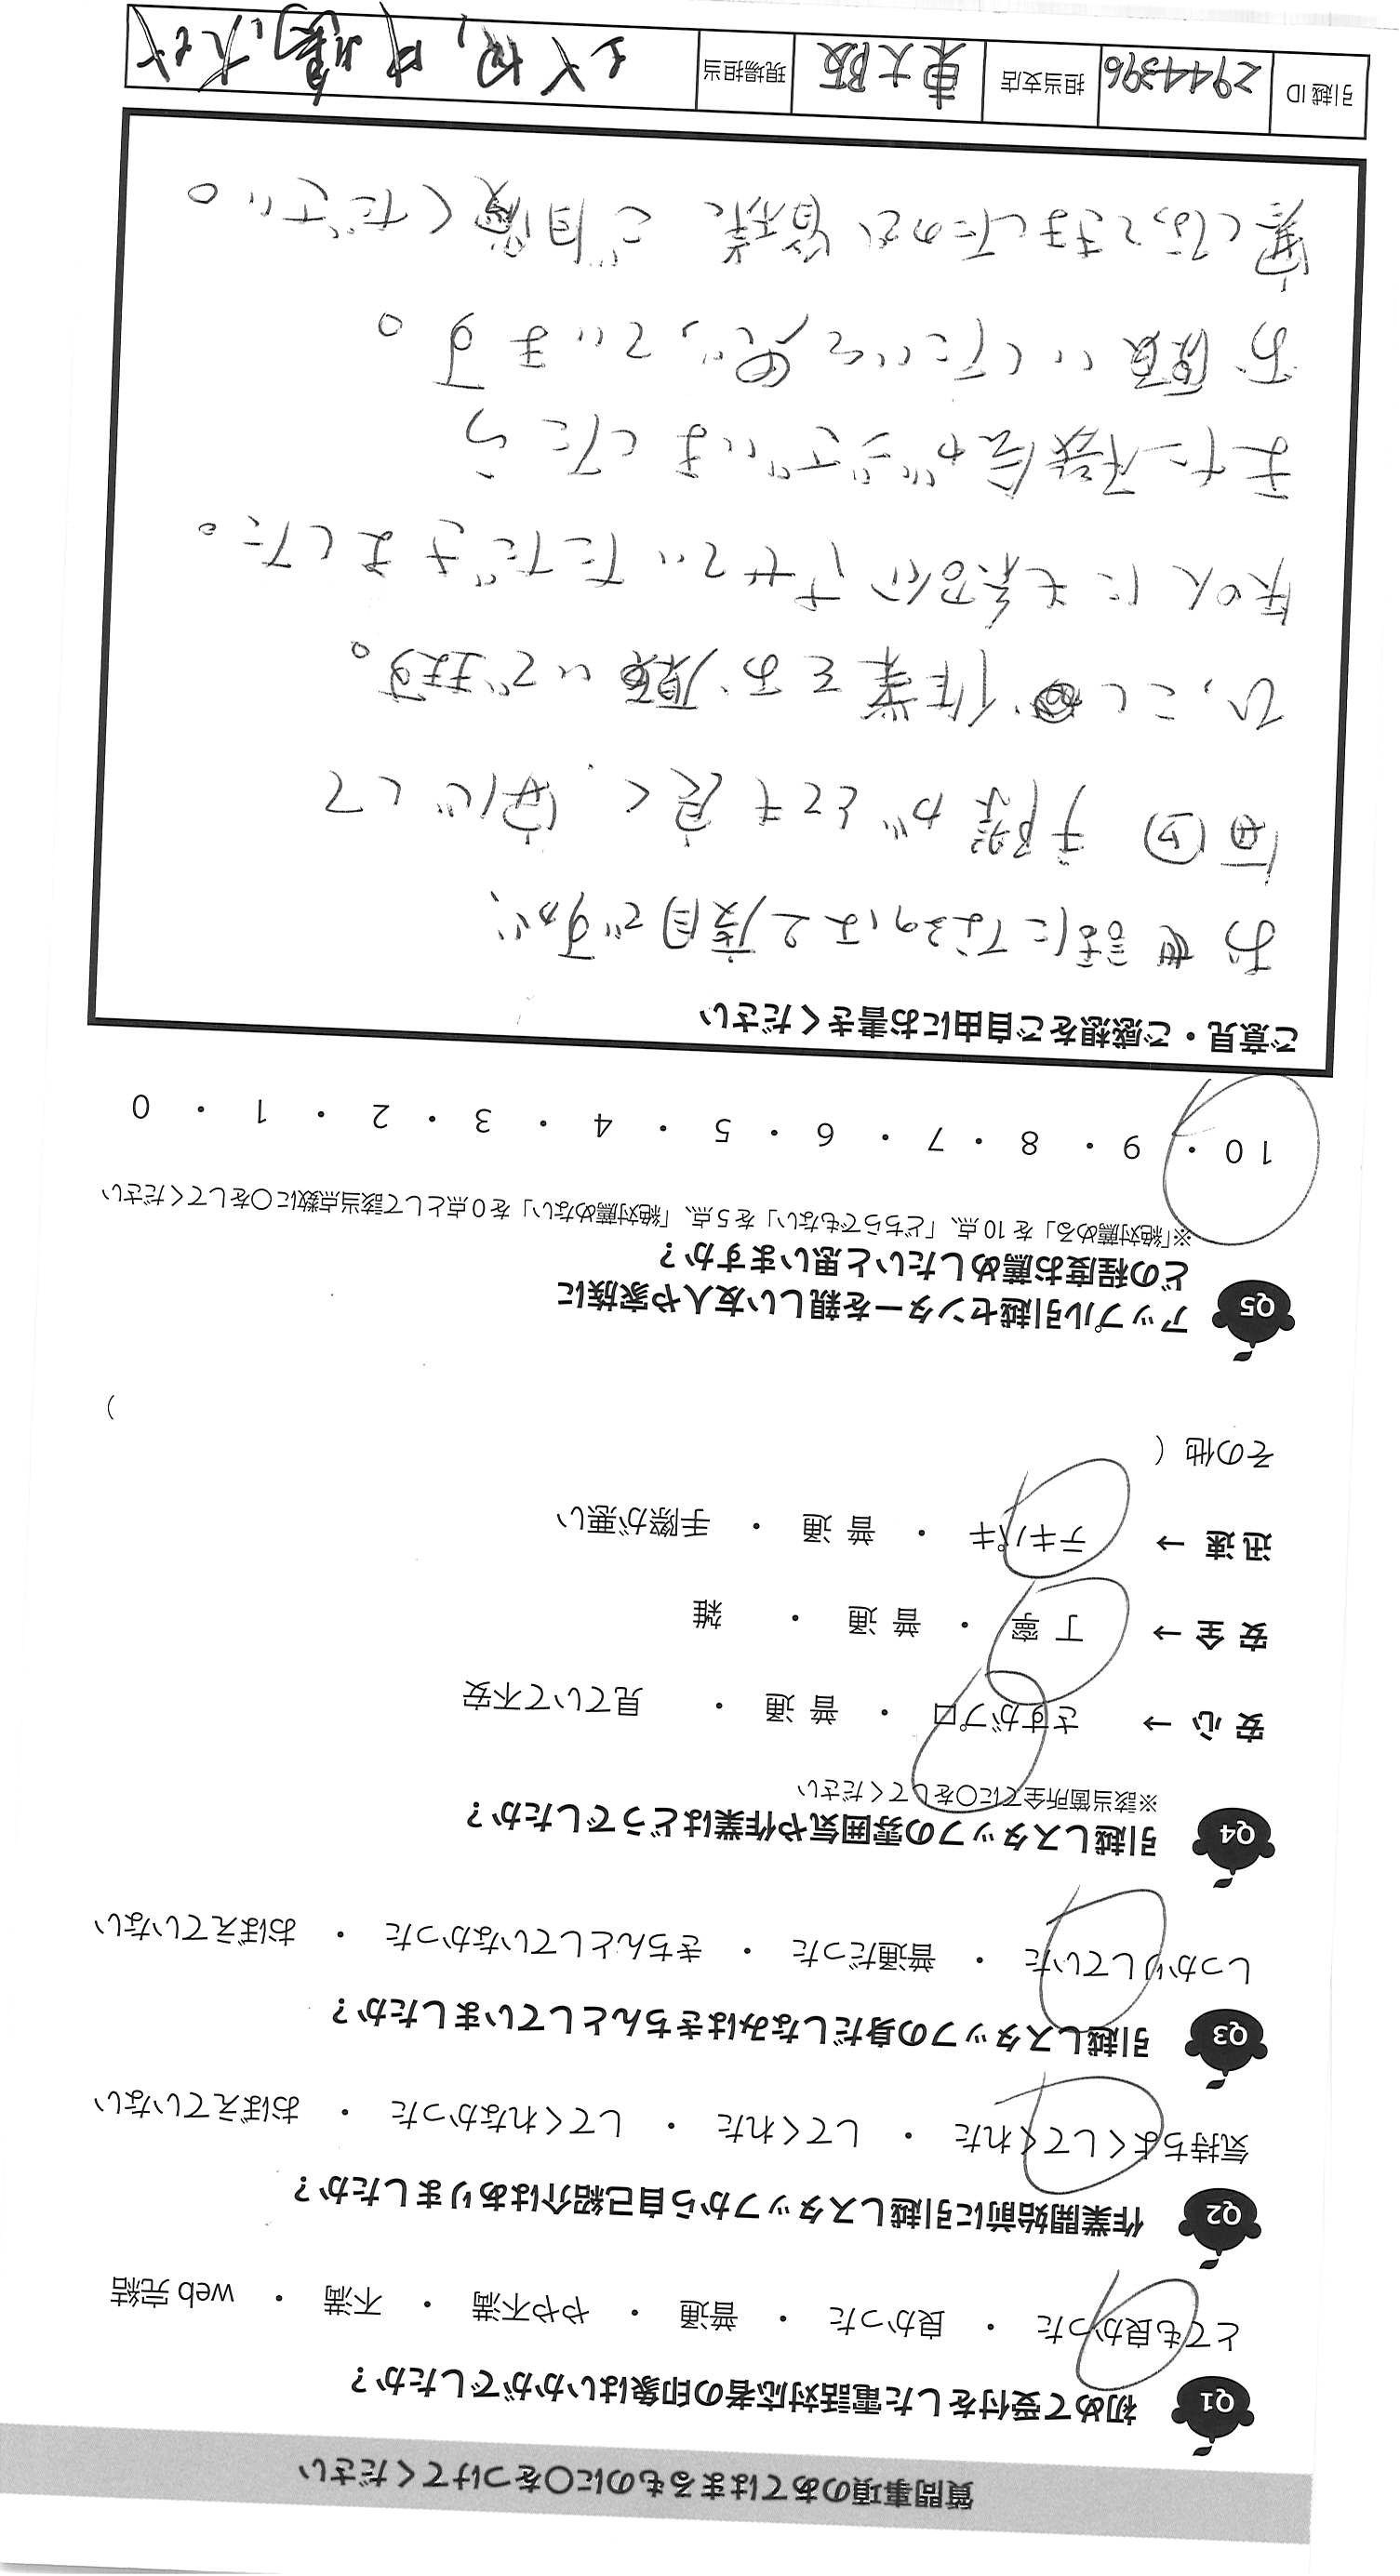 質問事項のあてはまるものに〇をつけてください
Q1 初めて受付をした電話対応者の印象はいかがでしたか？
とても良かった ・ 良かった ・ 普通 ・ やや不満 ・ 不満 ・ web 完結
Q2 作業開始前に引越しスタッフから自己紹介はありましたか？
気持ちよくしてくれた ・ してくれた ・ してくれなかった ・ おぼえていない
Q3 引越しスタッフの身だしなみはきちんとしていましたか？
しっかりしていた ・ 普通だった ・ きちんとしていなかった ・ おぼえていない
Q4 引越しスタッフの雰囲気や作業はどうでしたか？
※該当箇所全てに〇をしてください
安 心 → さすがプロ ・ 普 通 ・ 見ていて不安
安 全 → 丁 寧 ・ 普 通 ・ 雑
迅 速 → テキパキ ・ 普 通 ・ 手際が悪い
その他（ ）
Q5 アップル引越センターを親しい友人や家族に
どの程度お薦めしたいと思いますか？
※「絶対薦める」を 10 点、「どちらでもない」を 5 点、「絶対薦めない」を 0 点として該当点数に〇をしてください
10 ・ 9 ・ 8 ・ 7 ・ 6 ・ 5 ・ 4 ・ 3 ・ 2 ・ 1 ・ 0
ご意見・ご感想をご自由にお書きください
お世話になるのは2度目ですが、
毎回 手際がとても良く、安心して
ひっこし作業をお願いできます。
知人にも紹介させていただきました。
また機会がございましたら
お願いしたいと思っています。
寒くなってきましたので、皆様 ご自愛ください。
引越 ID 2944396 担当支店 東大阪 現場担当